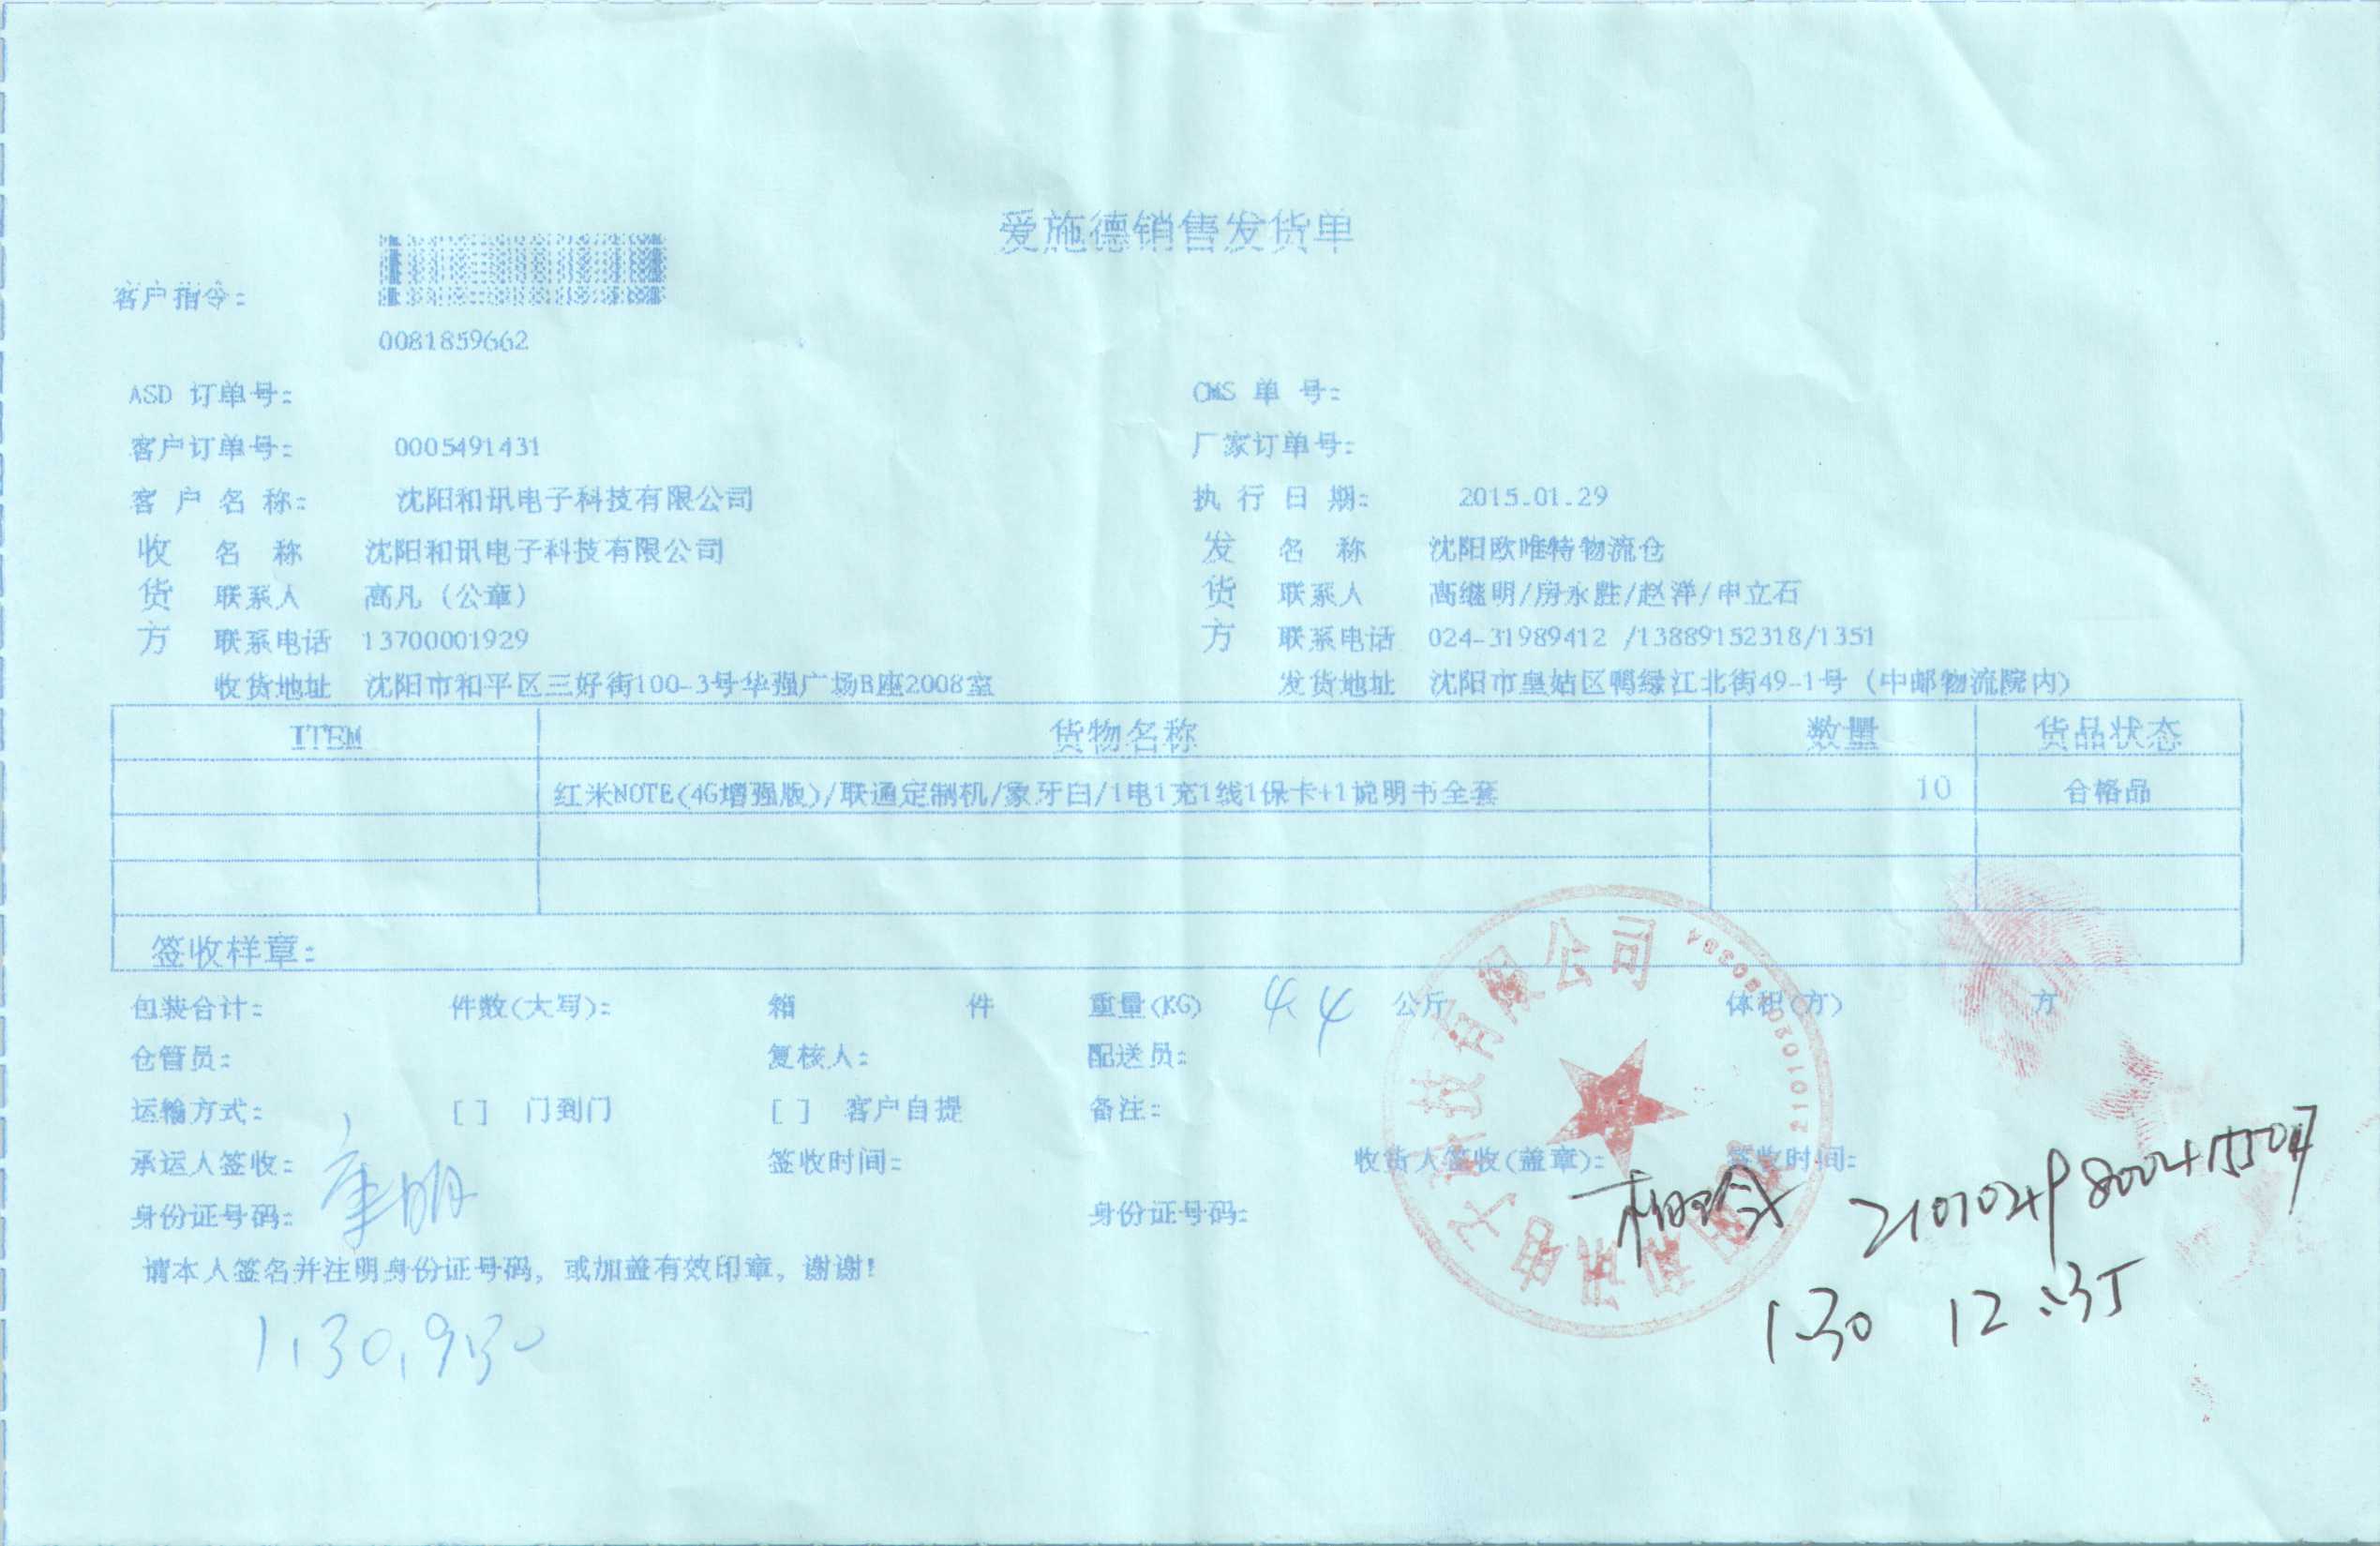 爱施德销售发货单
客户指令:
0081859662
ASD 订单号: OMS 单 号:
客户订单号: 0005491431 厂家订单号:
客 户 名 称: 沈阳和讯电子科技有限公司 执 行 日 期: 2015.01.29
收 名 称 沈阳和讯电子科技有限公司 发 名 称 沈阳欧唯特物流仓
货 联系人 高凡 (公章) 货 联系人 高继明/房永胜/赵洋/申立石
方 联系电话 13700001929 方 联系电话 024-31989412 /13889152318/1351
收货地址 沈阳市和平区三好街100-3号华强广场B座2008室 发货地址 沈阳市皇姑区鸭绿江北街49-1号 (中邮物流院内)
ITEM 货物名称 数量 货品状态
红米NOTE(4G增强版)/联通定制机/象牙白/1电1充1线1保卡+1说明书全套 10 合格品
签收样章:
包装合计: 件数(大写): 箱 件 重量(KG) 4.4 公斤 体积(方) 方
仓管员: 复核人: 配送员:
运输方式: [ ] 门到门 [ ] 客户自提 备注:
承运人签收: 签收时间: 收货人签收(盖章): 签收时间:
身份证号码: 身份证号码:
请本人签名并注明身份证号码, 或加盖有效印章, 谢谢!
1.30 12:35
1.30, 9:30